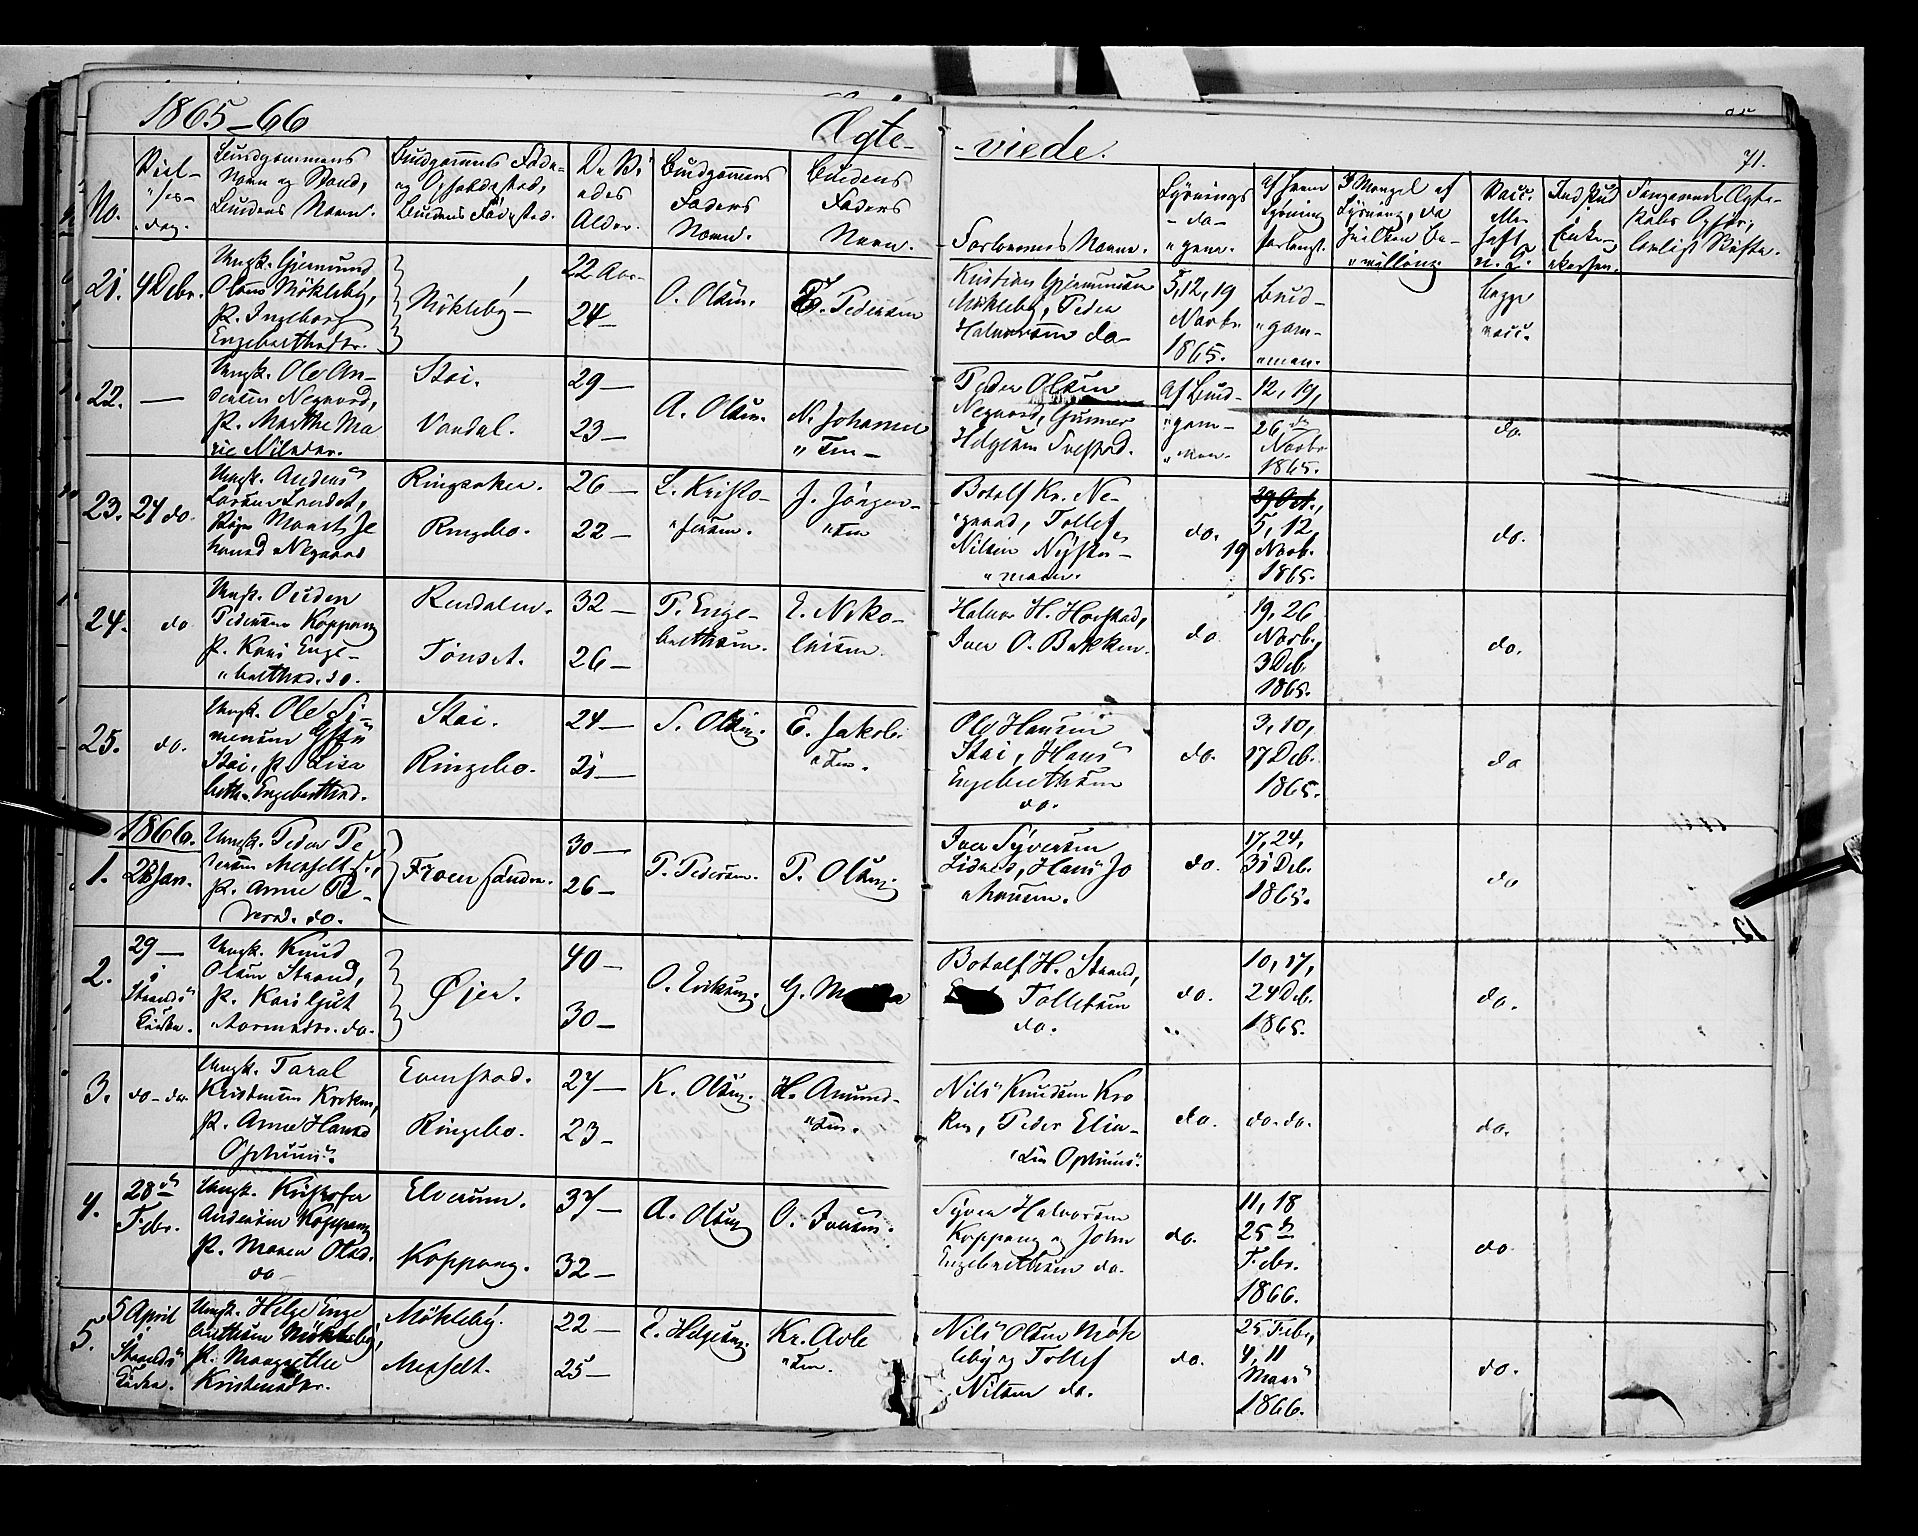 1865-66
Ægte-
-viede.
71.
No.
Viel-
"ses-
"dag.
Brudgommens
Navn og Stand,
Brudens Navn.
Brudgommens Føde-
og Opholdssted,
Brudens Fødested.
De Vi-
edes
Alder.
Brudgommens
Faders
Navn.
Brudens
Faders
Navn.
Forlovernes Navne.
Lysnings
-da-
"gene.
Af hvem
Lysning
forlangt.
I Mangel af
Lysning, da
hvilken Be-
"villing.
Vacc.
eller
haft
n. B.
Indskud
i
Enke-
"kassen.
Foregaaende Ægte-
skabs Ophør,
lovligt Skifte.
21. 4 Debr.
Ungk. Gjermund
Olsen Møkleby,
P. Ingeborg
Engebrethsdr.
Møkleby-
22 Aar-
24-
O. Olsen.
E. Pedersen
Kristian Gjermundsen
Møkleby, Peder
Halvorsen do-
5, 12, 19
Novbr.
1865.
Brud-
"gom-
"men.
begge
vacc.
22. -
Ungk. Ole An-
dersen Negaard,
P. Marthe Ma
rie Nilsdr.
Stai.
Vardal.
29-
23-
A. Olsen.
N. Johannes
"sen-
Peder Olsen
Negaard, Gunner
Helgesen Trefstad.
Af Brud-
"gom-
"men.
12, 19,
26 de
Novbr
1865.
do.
23. 24 do.
Ungk. Anders
Larsen Landet,
Pige Marit Jo
hansd Negaard
Ringsaker.
Ringebo.
26-
22-
L. Kristo-
"fersen.
J. Jörgen-
"sen
Botolf Kr. Ne-
"gaard, Tollef
Nilsen Nysto-
"moen.
do.
29 Oct.,
5, 12,
19 Novb.
1865.
do.
24. do
Ungk. Ouden
Pedersen Koppang
P. Kari Enge-
"brethsd. do.
Rendalen.
Tönset.
32-
26-
P. Enge-
brethsen.
E. Niko-
laisen.
Halvor H. Horstad,
Iver O. Bakken.
do
19, 26
Novb.,
3 Deb.
1865.
do.
25. do.
Ungk. Ole Si-
mensen
Stai, P. Lisa
beth Engebrethsd.
Stai.
Ringebo.
24-
21-
S. Olsen.
E. Jakob-
"sen.
Ole Hansen
Stai, Hans
Engebrethsen
do.
do.
3, 10,
17 Deb.
1865.
do
1866.
1. 28 Jan.
Ungk. Peder Pe
dersen Messelt,
P. Anne Pe-
dersd. do.
Froen søndre.
30-
26-
P. Pedersen.
P. Olsen.
Iver Syversen
Lidnes, Hans Jo
"hansen.
do.
17, 24,
31 Deb.
1865.
do
2. 29-
i
Strands
Kirke.
Ungk. Knud
Olsen Strand,
P. Kari Gut
"tormsdr. do.
Øjer.
40-
30-
O. Eriksen.
G.
Botolf H. Strand,
Tollefsen
do.
do.
"
10, 17,
24 Deb.
1865.
do.
3. do-do
Ungk. Taral
Kristensen Kroken,
P. Anne Hansd
Ophuus.
Evenstad.
Ringebo.
27-
23-
K. Olsen.
H. Amund-
"sen.
Nils Knudsen Kro
ken, Peder Elia-
"sen Ophuus.
do.
do. do.
do.
4. 28de
Febr.
Ungk. Kristofer
Andersen Koppang
P. Maren Olsd.
do-
Elverum.
Koppang.
37-
32-
A. Olsen
O. Iversen.
Syver Halvorsen
Koppang og John
Engebrethsen do.
do.
11, 18
25 de
Febr.
1866.
do.
5. 5 April
i
Strands
Kirke.
Ungk. Helge Enge
brethsen Møkleby,
P. Margrethe
Kristensdr.
Møkleby.
Messelt.
22-
25-
E. Helgesen.
Kr. Avle
"sen.
Nils Olsen Møk
leby og Tollef
Nilsen do.
do.
25 Febr,
4, 11
Mars
1866.
do.